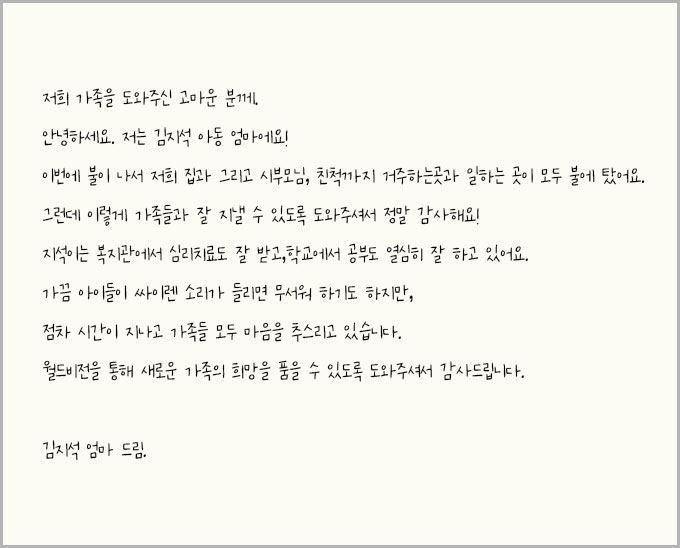 저희 가족을 도와주신 고마운 분께.
안녕하세요. 저는 김지석 아동 엄마에요!
이번에 불이 나서 저희 집과 그리고 시부모님, 친척까지 거주하는곳과 일하는 곳이 모두 불에 탔어요.
그런데 이렇게 가족들과 잘 지낼 수 있도록 도와주셔서 정말 감사해요!
지석이는 복지관에서 심리치료도 잘 받고,학교에서 공부도 열심히 잘 하고 있어요.
가끔 아이들이 싸이렌 소리가 들리면 무서워 하기도 하지만,
점차 시간이 지나고 가족들 모두 마음을 추스리고 있습니다.
월드비전을 통해 새로운 가족의 희망을 품을 수 있도록 도와주셔서 감사드립니다.
김지석 엄마 드림.